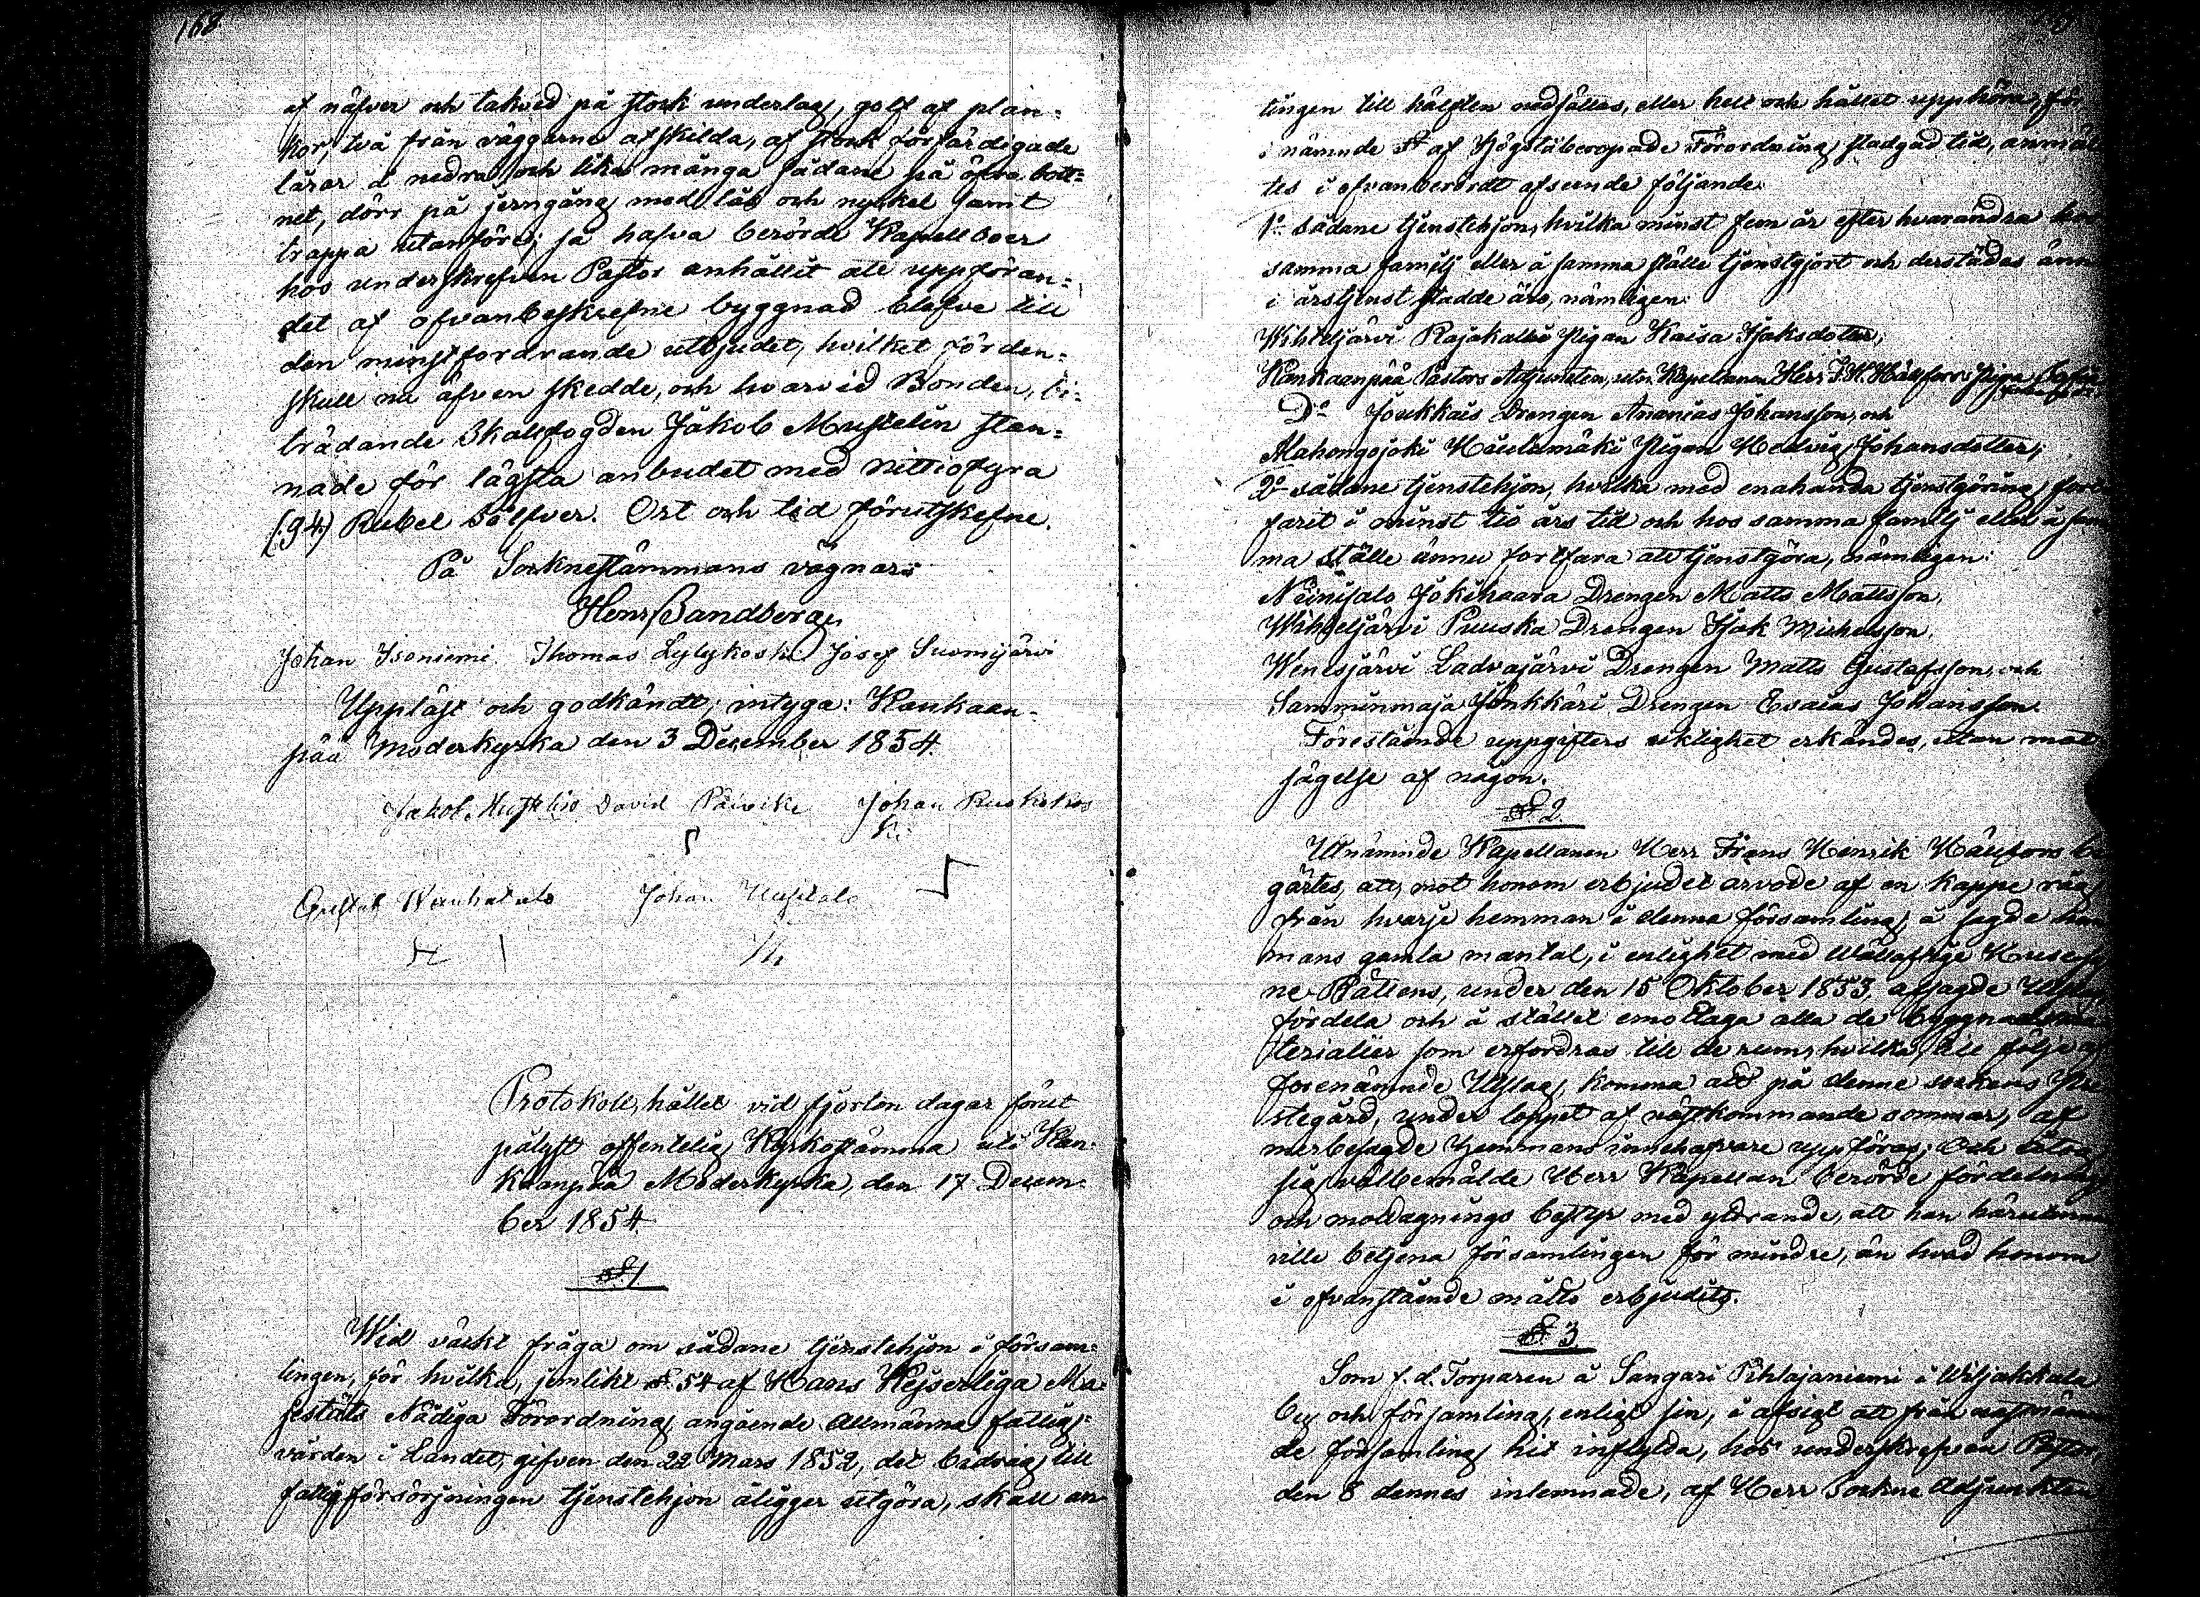 168
af näfver och takved på stock underlag, golf af plan-
kor, två från väggarne afskilda, af stock förfärdigade
lårar å nedra och lika många sådane på öfra bott-
net, dörr på jerngång med lås och nyckel samt
trappa utanföre; så hafva berörde Kapellboer
hos underskrefven Pastor anhållit att uppföran-
det af ofvanbeskrefne byggnad blefve till
den minstfordrande utbjudet, hvilket förden-
skull nu äfven skedde, och hvarvid Bonden, bi-
trädande Skallfogden Jakob Mustelin stan-
nade för lägsta anbudet med nittiofyra
(94) Rubel Silfver. Ort och tid förutskrefne.
På Socknestämmans vägnar:
Henr. Sandberg
Johan Isoniemi. Thomas Lylykoski Josef Suomijärvi
Uppläst och godkändt; intyga: Kankaan-
pää Moderkyrka den 3 December 1854.
Jakob Mustelin David Päivike Johan Ruohokos
ki
Gustaf Wanhatalo Johan Uusitalo
Protokoll, hållet vid fjorton dagar förut
pålyst offentelig Kyrkostämma uti Kan-
kaanpää Moderkyrka, den 17 Decem-
ber 1854.
§ 1
Wid väckt fråga om sådane tjenstehjon i försam-
lingen, för hvilka, jemlikt § 54 af Hans Kejserliga Ma-
jestäts Nådiga Förordning angående allmänna fattig-
vården i Landet, gifven den 22 Mars 1852, det bidrag till
fattigförsörjningen tjenstehjon åligger utgöra, skall an-
tingen till hälften nedsättas, eller helt och hållet upphöra, för
i nämnde § af Högstäberopade Förordning stadgad tid, anmäl
tes i ofvanberördt afseende följande:
1o sådane tjenstehjon, hvilka minst fem år efter hvarandra hos
samma familj eller å samma ställe tjenstgjort och derstädes ännu
i årstjenst stadde äro, nämligen:
Wihteljärvi Rajakallio Pigan Kaisa Isaksdotter;
Kankaanpää Pastors Adjunkten, utn. Kapellanen Herr F. H. Hällfors Piga
Do Joukkais Drengen Ananias Johansson, och
Alahongojoki Heidämäki Pigan Hedvig Johansdotter;
2o sådane tjenstehjon, hvilka med enahanda tjenstgöring fort
farit i minst tio års tid och hos samma familj eller å sam
ma ställe ännu fortfara att tjenstgöra, nämligen:
Niinisalo Jokihaara Drengen Matts Mattsson,
Wihteljärvi Puuska Drengen Isak Michelsson,
Wenesjärvi Ladvajärvi Drengen Matts Gustafsson, och
Samminmaja Jünkkäri Drengen Esaias Johansson.
Förestående uppgifters riktighet erkändes, utan mot
sägelse af någon.
§ 2
Utnämnde Kapellanen Herr Frans Henrik Hällfors be
gärtes, att, mot honom erbjudet arvode af en kappe råg
från hvarje hemman i denna församling, å sagde hem
mans gamla mantal, i enlighet med Wällofliga Husesy
ne-Rättens, under den 15 Oktober 1853, afsagde Utslag
fördela och å stället emottaga alla de byggnadsma
terialier som erfordras till de rum, hvilka, till följe af
förenämnde Utslag, komma att på denne sockens Pre
stegård, under loppet af nästkommande sommar, af
merbesagde hemmans innehafvare uppföras; och åtog
sig välbemälde Herr Kapellan berörde fördelnings
och mottagnings bestyr med yttrande, att han härutinnan
ville betjena församlingen för mindre, än hvad honom
i ofvanstående måtto erbjudits.
§ 3
Som f. d. Torparen å Sangari Pihlajaniemi i Wiljakkala
by och församling, enligt sin, i afsigt att från nästnämn
de församling hit inflytta, hos underskrefven Pastor,
den 8 dennes inlemnade, af Herr Sockne Adjunkten